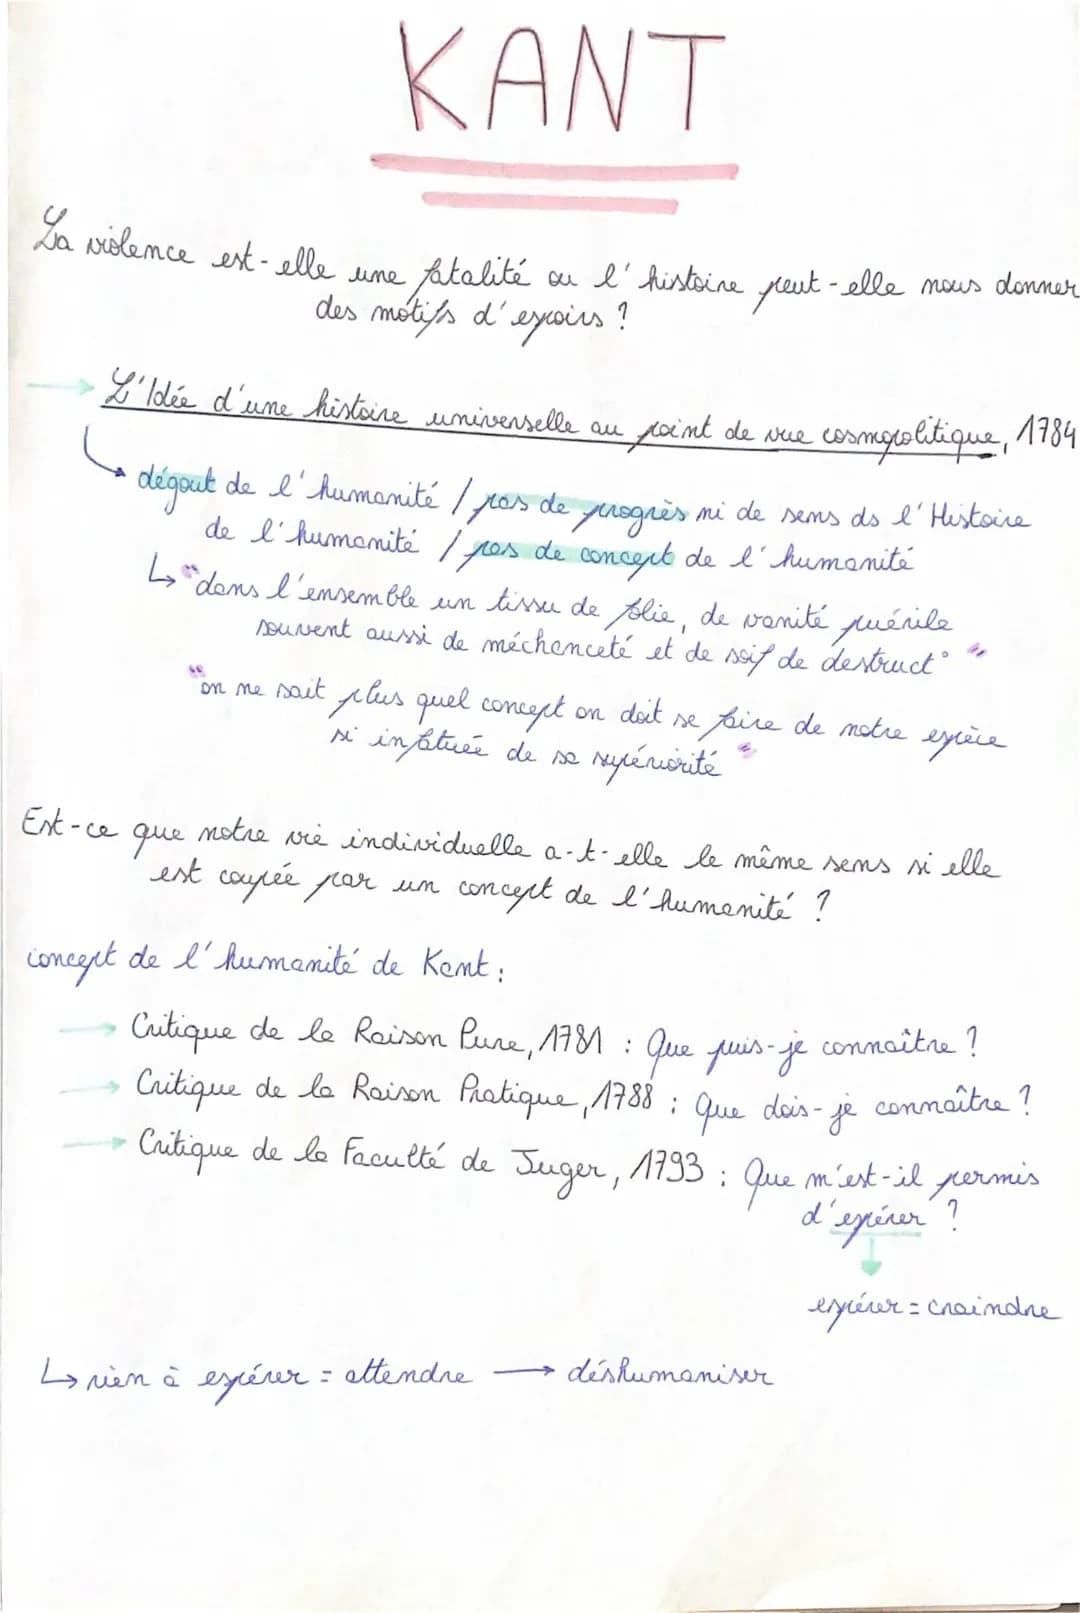 KANT
La violence est-elle une fatalité ou l'histoire peut-elle nous donner
des motifs d'espoirs ?
L'Idée d'une histoire universelle au point de vue cosmopolitique, 1784
dégout de l'humanité / pas de progrès ni de sens ds l'Histoire
de l'humanité / pas de concept de l'humanité
"dans l'ensemble un tissu de folie, de vanité puérile
souvent aussi de méchanceté et de soif de destruct°"
"on ne sait plus quel concept on doit se faire de notre espèce
si infatuée de sa supériorité"
Est-ce que notre vie individuelle a-t-elle le même sens si elle
est coupée par un concept de l'humanité ?
concept de l'humanité de Kant :
→ Critique de la Raison Pure, 1781 : Que puis-je connaître ?
→ Critique de la Raison Pratique, 1788 : Que dois-je connaître ?
→ Critique de la Faculté de Juger, 1793 : Que m'est-il permis
d'espérer ?
espérer = craindre
↳ rien à espérer = attendre → déshumaniser